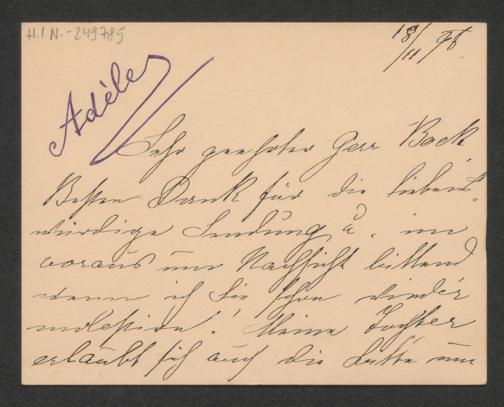 H.I.N.-249785
18/11 98.
Adèle
Sehr geehrter Herr Bock
Besten Dank für die liebens-
würdige Sendung u. im
voraus um Nachsicht bittend
wenn ich Sie schon wieder
molestire! Meine Tochter
erlaubt sich auch die Bitte um